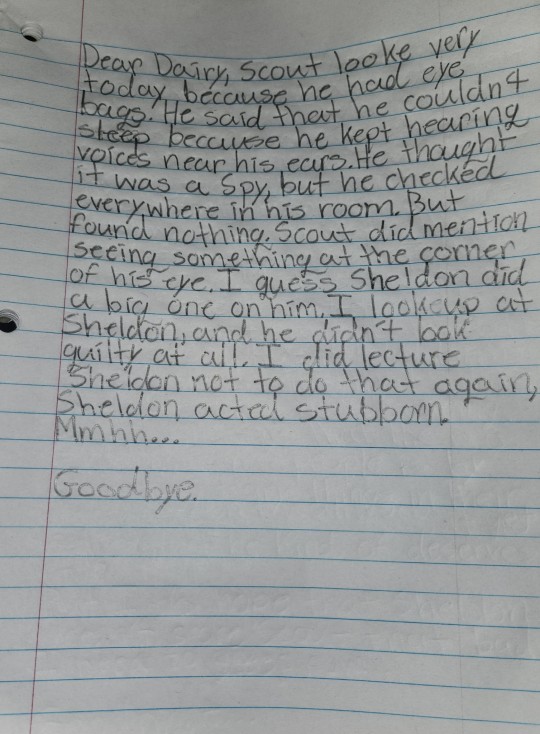 Dear Dairy, Scout looke very
today, because he had eye
bags. He said that he couldn't
sleep because he kept hearing
voices near his ears. He thought
it was a spy, but he checked
everywhere in his room. But
found nothing. Scout did mention
seeing something at the corner
of his eye. I guess Sheldon did
a big one on him. I look up at
Sheldon, and he didn't look
guilty at all. I did lecture
Sheldon not to do that again,
Sheldon acted stubborn.
Mmhh...
Goodbye.